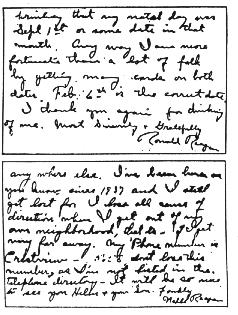 printing that my natal day was
Sept 1st or some date in that
month. Any way I am more
fortunate than a lot of folk
by getting many cards on both
dates. Feb. 6th is the correct date.
I thank you again for thinking
of me. Most Sincerely & Gratefully
Ronald Reagan
any where else. I've been here as
you know since 1937 and I still
get lost for I lose all sense of
direction when I get out of my
own neighborhood, that is - if I get
very far away. My 'Phone number is
Crestview - don't lose this
number, as I'm not listed in the
telephone directory - It will be so nice
to see you Helen & your Son. Fondly
Nelle Reagan